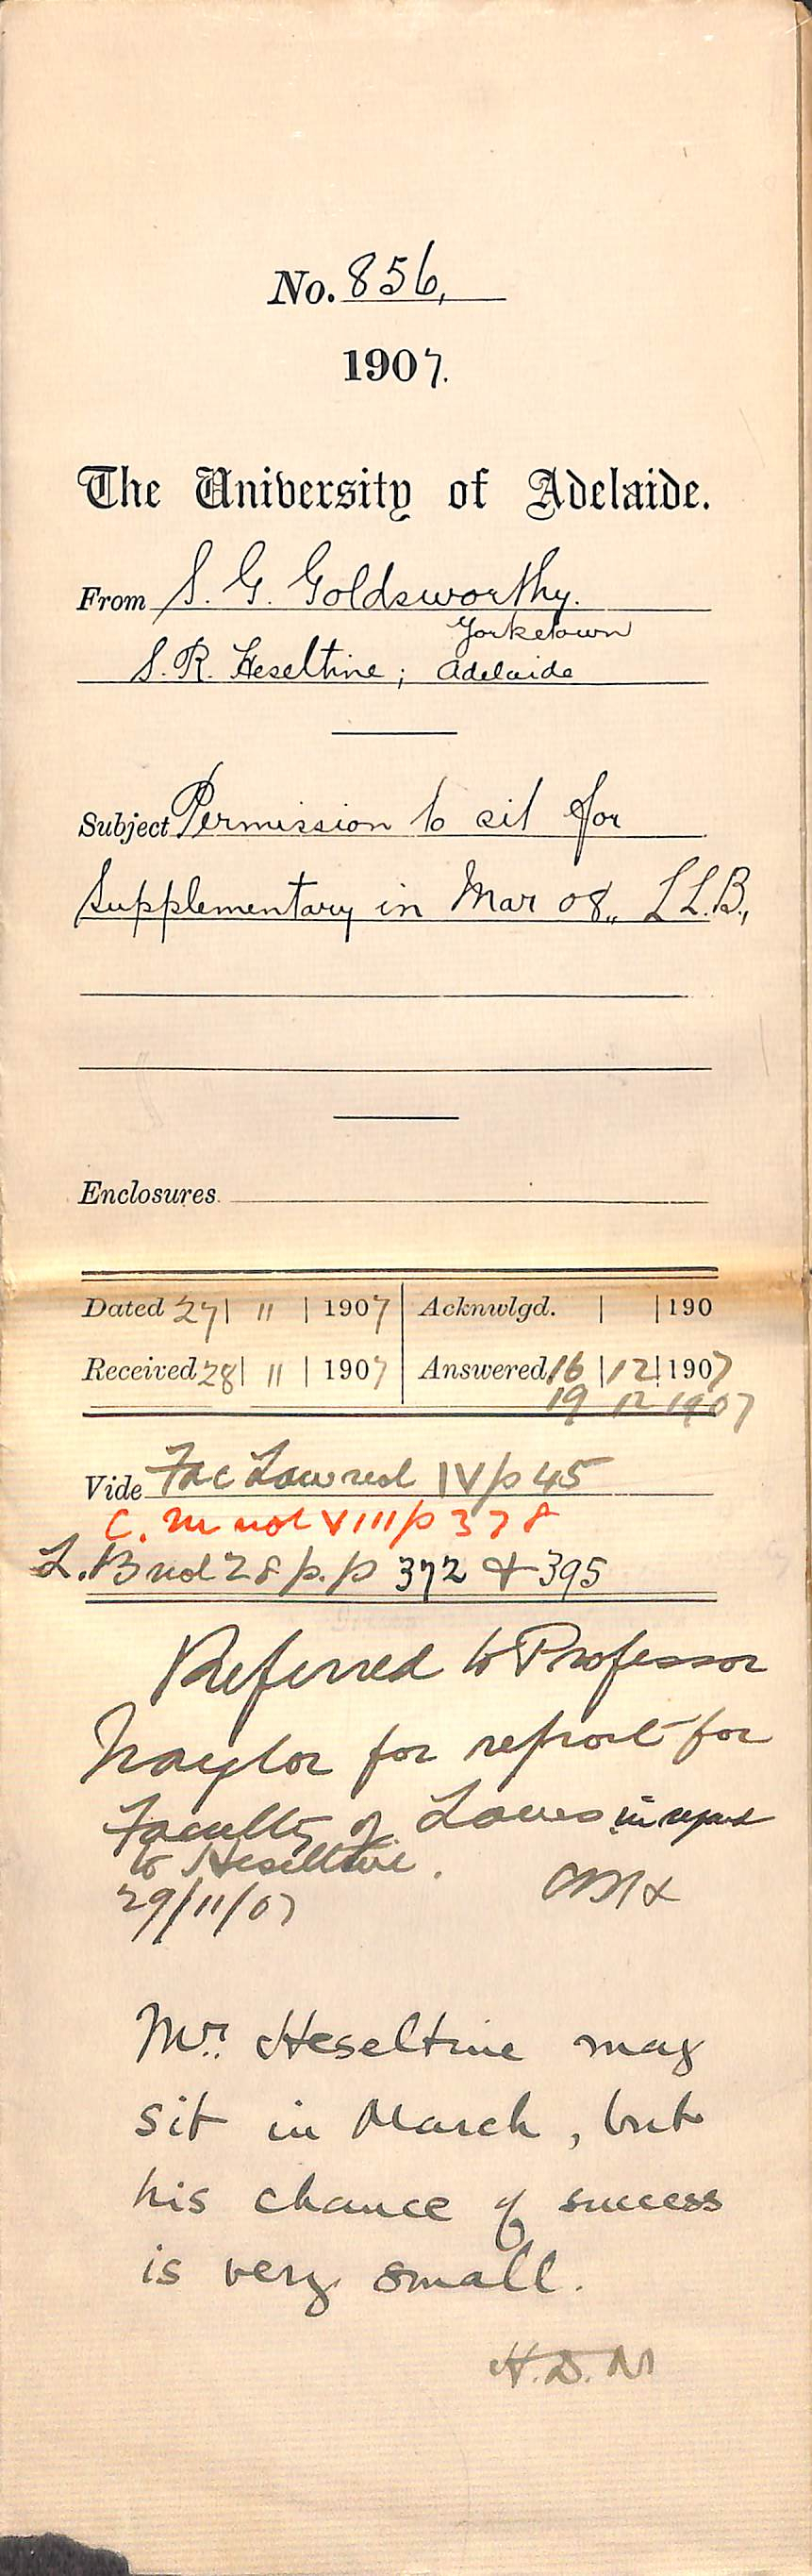 No. 856,
1907.
The University of Adelaide.
From S. G. Goldsworthy.
Yorketown
S. R. Heseltine; Adelaide
Subject Permission to sit for
Supplementary in Mar 08,, LL.B.,
Enclosures
Dated 27| 11 |1907 | Acknwlgd. | |190
Received 28| 11 |1907 | Answered 16 |12|1907
19 12 1907
Vide Fac Law vol IV p 45
C. M vol VIII p 378
L.B vol 28 p.p 372 & 395
Referred to Professor
Naylor for report for
Faculty of Laws in regard
to Heseltine.
29/11/07
Mr. Heseltine may
sit in March, but
his chance of success
is very small.
H.D.N